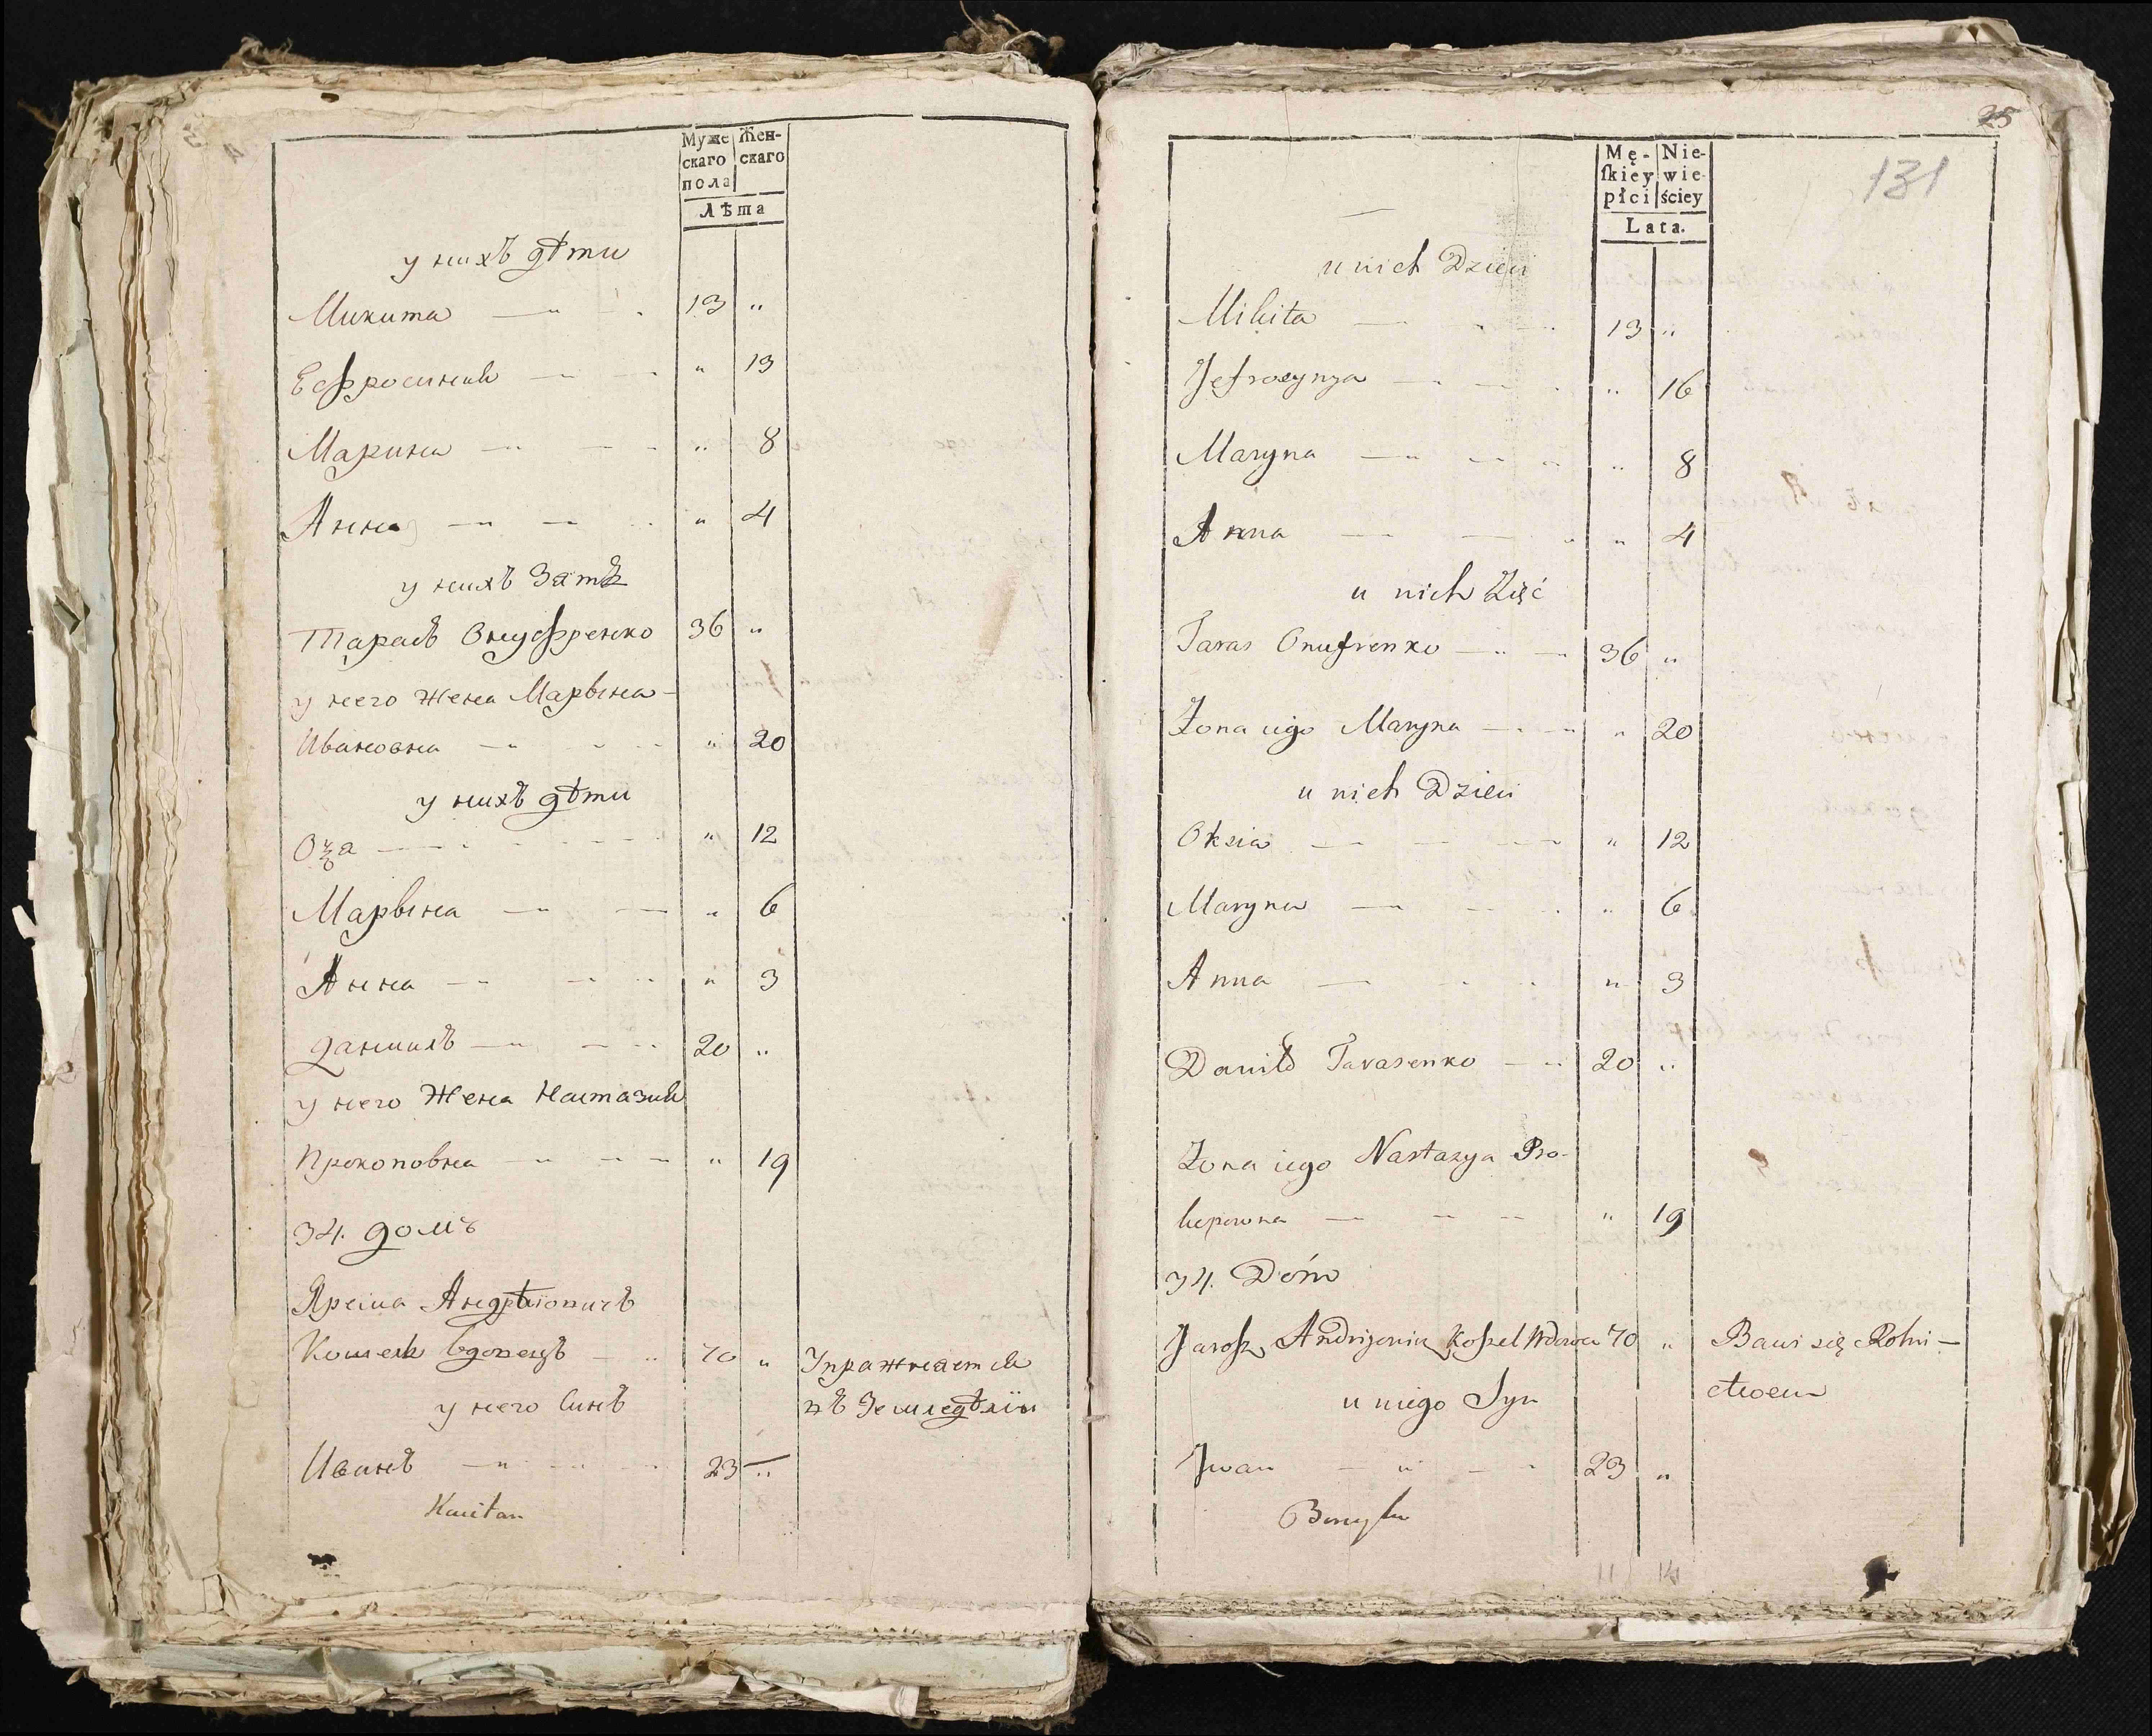 Муже
скаго
пола
Жен-
скаго
Лѣта
у нихъ дѣти
Микита 13 "
Ефросиния " 13
Марина " 8
Анна " 4
у нихъ Зать
Тарасъ Онуфренко 36 "
у него Жена Марына
Ивановна " 20
у нихъ дѣти
" 12
Марына " 6
Анна " 3
данилъ 20 "
у него Жена Настазия
Прокоповна " 19
34. домъ
Ярема Андрѣiовичъ
Кошель вдовецъ 70 " Упражняется
въ Земледѣлiи
у него Синъ
Иванъ 23 "
25
131
Mę-
ſkiey
płci
Nie-
wie-
ściey
Lata.
u nich Dzieci
Mikita 13 "
Jefrozynya " 16
Maryna " 8
Anna " 4
u nich Zięć
Taras Onufrenko 36 "
Żona iego Maryna " 20
u nich Dzieci
Oksia " 12
Maryna " 6
Anna " 3
Daniło Tarasenko 20 "
Żona iego Nastazya Pro-
kopowna " 19
34. Dóm
Jarosz Andrijowicz Koszel Wdowiec 70 " Bawi się Rolni-
ctwem
u niego Syn
Jwan 23 "
11 14